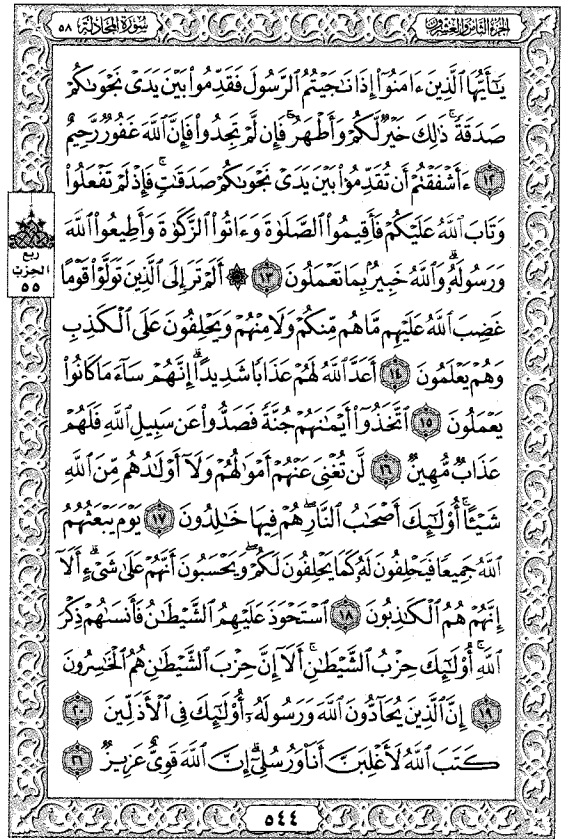 الجزء الثامن والعشرون
سورة المجادلة ٥٨
يَـٰٓأَيُّهَا ٱلَّذِينَ ءَامَنُوٓا۟ إِذَا نَـٰجَيْتُمُ ٱلرَّسُولَ فَقَدِّمُوا۟ بَيْنَ يَدَىْ نَجْوَىٰكُمْ
صَدَقَةً ۚ ذَٰلِكَ خَيْرٌ لَّكُمْ وَأَطْهَرُ ۚ فَإِن لَّمْ تَجِدُوا۟ فَإِنَّ ٱللَّهَ غَفُورٌ رَّحِيمٌ
١٢ ءَأَشْفَقْتُمْ أَن تُقَدِّمُوا۟ بَيْنَ يَدَىْ نَجْوَىٰكُمْ صَدَقَـٰتٍ ۚ فَإِذْ لَمْ تَفْعَلُوا۟
وَتَابَ ٱللَّهُ عَلَيْكُمْ فَأَقِيمُوا۟ ٱلصَّلَوٰةَ وَءَاتُوا۟ ٱلزَّكَوٰةَ وَأَطِيعُوا۟ ٱللَّهَ
وَرَسُولَهُۥ ۚ وَٱللَّهُ خَبِيرٌۢ بِمَا تَعْمَلُونَ ١٣ ۞ أَلَمْ تَرَ إِلَى ٱلَّذِينَ تَوَلَّوْا۟ قَوْمًا
غَضِبَ ٱللَّهُ عَلَيْهِم مَّا هُم مِّنكُمْ وَلَا مِنْهُمْ وَيَحْلِفُونَ عَلَى ٱلْكَذِبِ
وَهُمْ يَعْلَمُونَ ١٤ أَعَدَّ ٱللَّهُ لَهُمْ عَذَابًا شَدِيدًا ۖ إِنَّهُمْ سَآءَ مَا كَانُوا۟
يَعْمَلُونَ ١٥ ٱتَّخَذُوٓا۟ أَيْمَـٰنَهُمْ جُنَّةً فَصَدُّوا۟ عَن سَبِيلِ ٱللَّهِ فَلَهُمْ
عَذَابٌ مُّهِينٌ ١٦ لَّن تُغْنِىَ عَنْهُمْ أَمْوَٰلُهُمْ وَلَآ أَوْلَـٰدُهُم مِّنَ ٱللَّهِ
شَيْـًٔا ۚ أُو۟لَـٰٓئِكَ أَصْحَـٰبُ ٱلنَّارِ ۖ هُمْ فِيهَا خَـٰلِدُونَ ١٧ يَوْمَ يَبْعَثُهُمُ
ٱللَّهُ جَمِيعًا فَيَحْلِفُونَ لَهُۥ كَمَا يَحْلِفُونَ لَكُمْ ۖ وَيَحْسَبُونَ أَنَّهُمْ عَلَىٰ شَىْءٍ ۚ أَلَآ
إِنَّهُمْ هُمُ ٱلْكَـٰذِبُونَ ١٨ ٱسْتَحْوَذَ عَلَيْهِمُ ٱلشَّيْطَـٰنُ فَأَنسَىٰهُمْ ذِكْرَ
ٱللَّهِ ۚ أُو۟لَـٰٓئِكَ حِزْبُ ٱلشَّيْطَـٰنِ ۚ أَلَآ إِنَّ حِزْبَ ٱلشَّيْطَـٰنِ هُمُ ٱلْخَـٰسِرُونَ
١٩ إِنَّ ٱلَّذِينَ يُحَآدُّونَ ٱللَّهَ وَرَسُولَهُۥٓ أُو۟لَـٰٓئِكَ فِى ٱلْأَذَلِّينَ ٢٠
كَتَبَ ٱللَّهُ لَأَغْلِبَنَّ أَنَا۠ وَرُسُلِىٓ ۚ إِنَّ ٱللَّهَ قَوِىٌّ عَزِيزٌ ٢١
ربع
الحزب
٥٥
٥٤٤